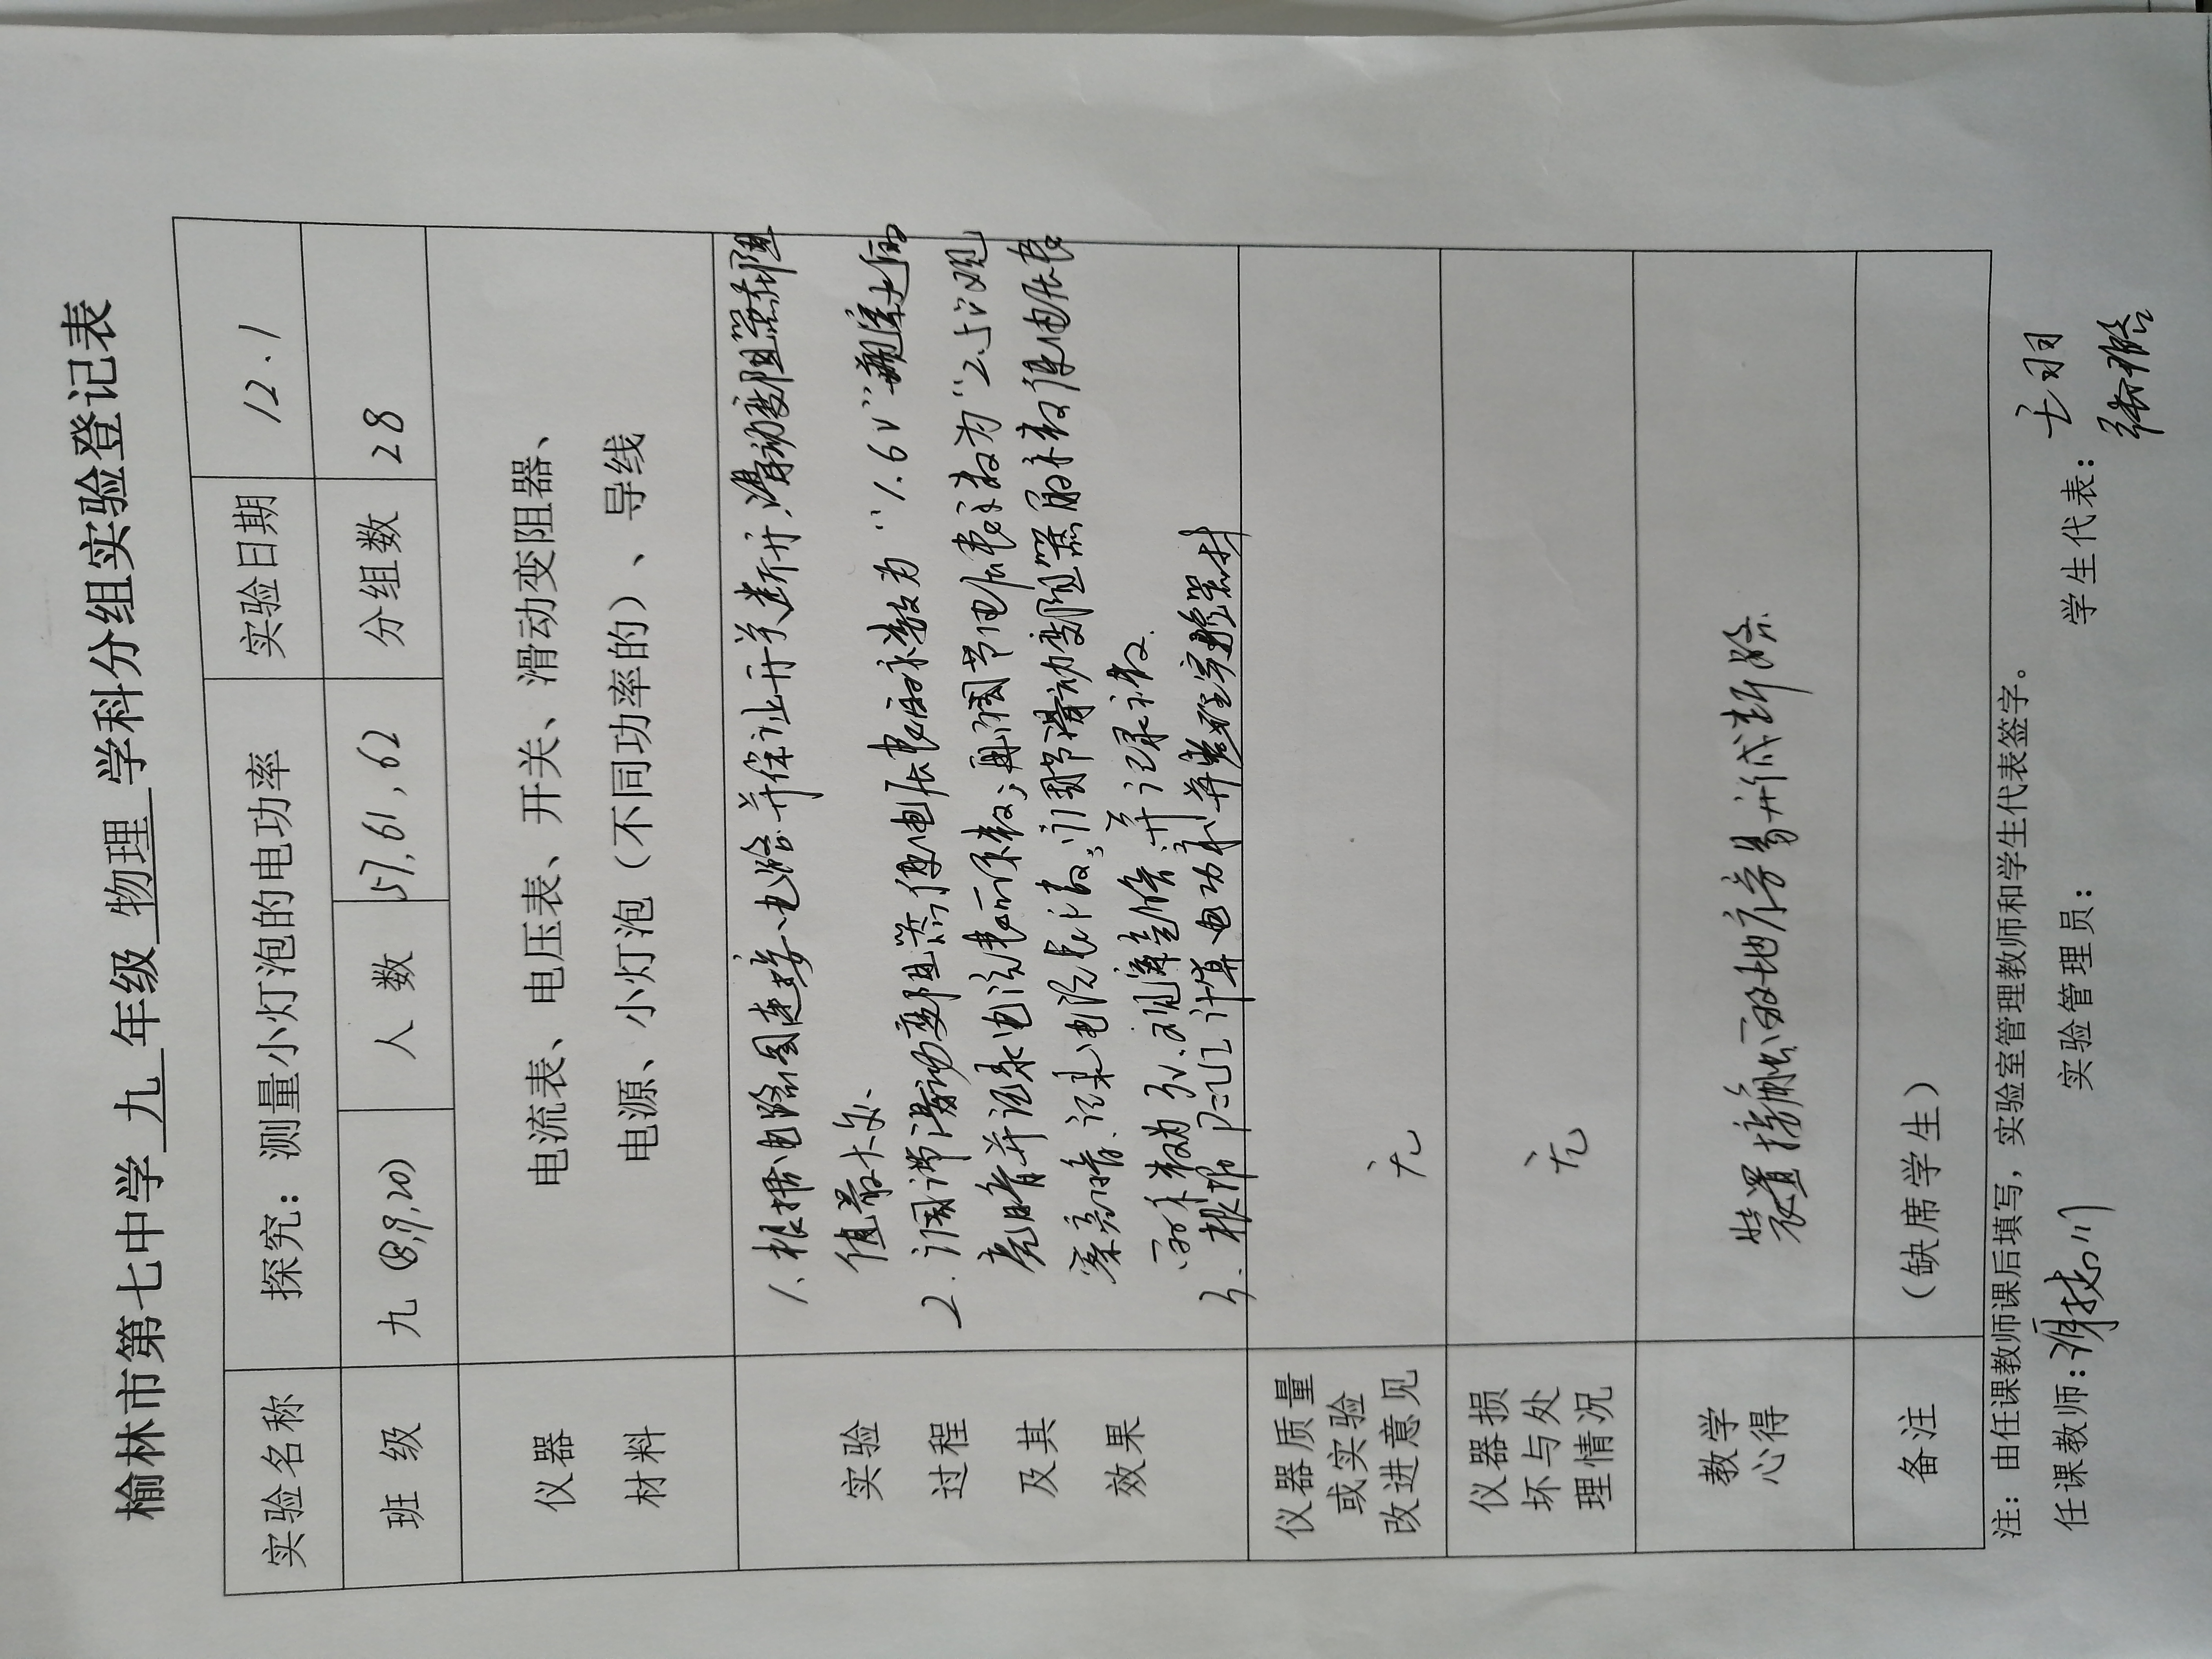 榆林市第七中学 九 年级 物理 学科分组实验登记表
实验名称 探究：测量小灯泡的电功率 实验日期 12.1
班 级 九（8,9,20） 人 数 57,61,62 分组数 28
仪器
材料
电流表、电压表、开关、滑动变阻器、
电源、小灯泡（不同功率的）、导线
实验
过程
及其
效果
1、根据电路图连接电路并保证开关断开,滑动变阻器阻
值最大处.
2. 调节滑动变阻器,使电压表的示数为"1.6V"观察灯泡
亮暗并记录电流表示数;再调节电压表示数为"2.5V"观
察亮暗、记录电流表读数;调节滑动变阻器的示数使电压表
示数为3V.观察亮暗,并记录示数.
3. 根据P=UI计算电功率并整理实验器材
仪器质量
或实验
改进意见
无
仪器损
坏与处
理情况
无
教学
心得
装置接触的地方易形成断路.
备注
（缺席学生）
注：由任课教师课后填写，实验室管理教师和学生代表签字。
任课教师： 实验管理员： 学生代表： 王羽